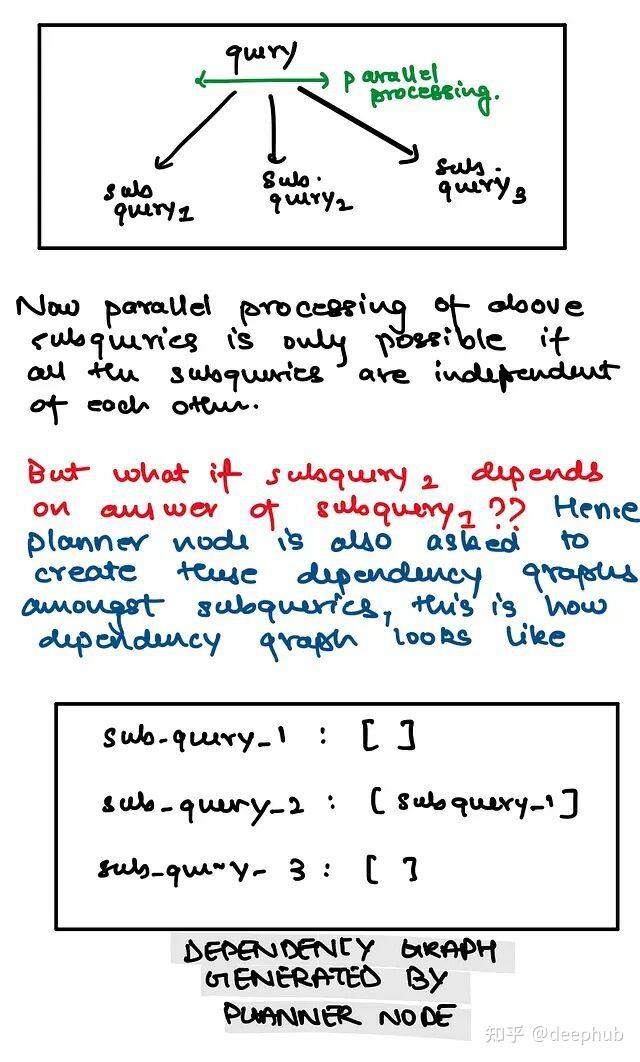 query
parallel
processing.
sub
query1
sub.
query2
sub.
query3
Now parallel processing of above
subqueries is only possible if
all the subqueries are independent
of each other.
But what if subquery2 depends
on answer of subquery1 ?? Hence
planner node is also asked to
create these dependency graphs
amongst subqueries, this is how
dependency graph looks like
sub-query_1 : [ ]
sub_query_2 : [subquery_1]
sub_query_3 : [ ]
DEPENDENCY GRAPH
GENERATED BY
PLANNER NODE
知乎 @deephub